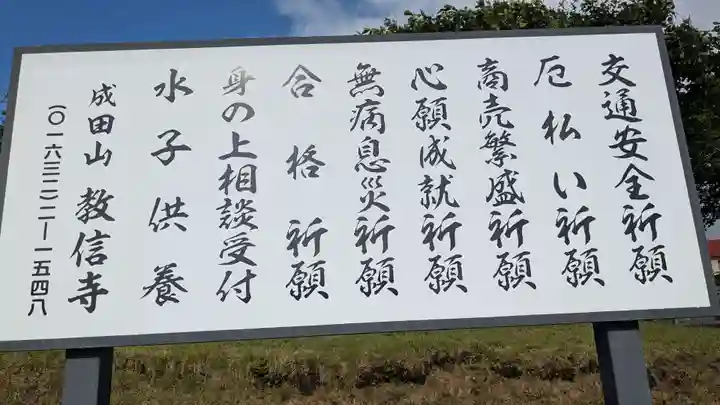 交通安全祈願
厄払い祈願
商売繁盛祈願
心願成就祈願
無病息災祈願
合格祈願
身の上相談受付
水子供養
成田山教信寺
(〇一六三二)二―一五四八